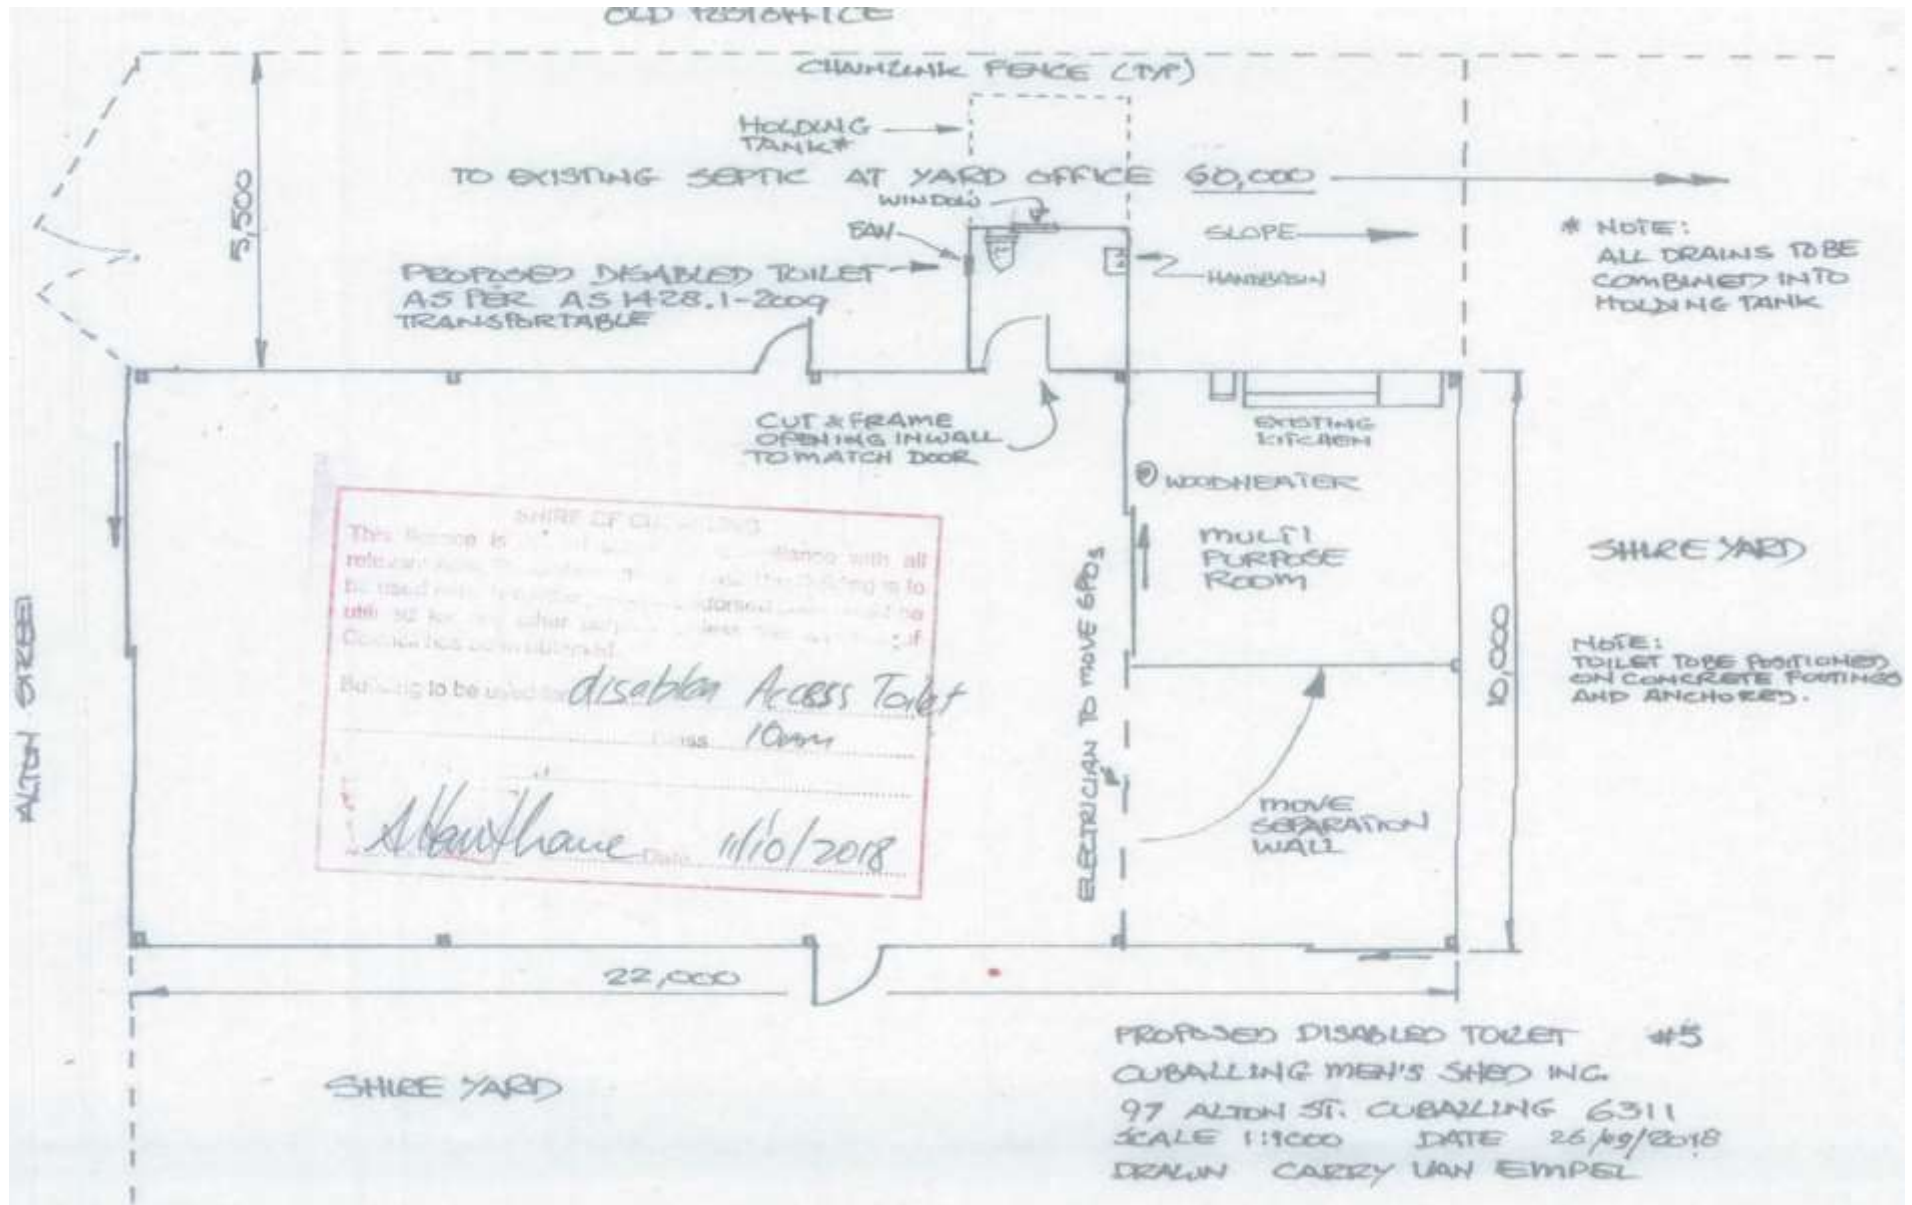 OLD POSTOFFICE
CHAINLINK FENCE (TYP)
HOLDING
TANK*
TO EXISTING SEPTIC AT YARD OFFICE 60,000
WINDOW
FAN
SLOPE
HANDBASIN
5,500
PROPOSED DISABLED TOILET
AS PER AS 1428.1-2009
TRANSPORTABLE
* NOTE:
ALL DRAINS TO BE
COMBINED INTO
HOLDING TANK
CUT & FRAME
OPENING IN WALL
TO MATCH DOOR
EXISTING
KITCHEN
WOODHEATER
MULTI
PURPOSE
ROOM
SHIRE YARD
NOTE:
TOILET TO BE POSITIONED
ON CONCRETE FOOTINGS
AND ANCHORED.
10,000
ALTON STREET
ELECTRICIAN TO MOVE GPOS
MOVE
SEPARATION
WALL
SHIRE OF
This licence is with all
relevant is to
be used
other of
Council has
Building to be used for disabled Access Toilet
Class 10
Date 11/10/2018
22,000
SHIRE YARD
PROPOSED DISABLED TOILET #5
CUBALLING MEN'S SHED INC.
97 ALTON ST. CUBALLING 6311
SCALE 1:1000 DATE 26/09/2018
DRAWN CARRY VAN EMPEL